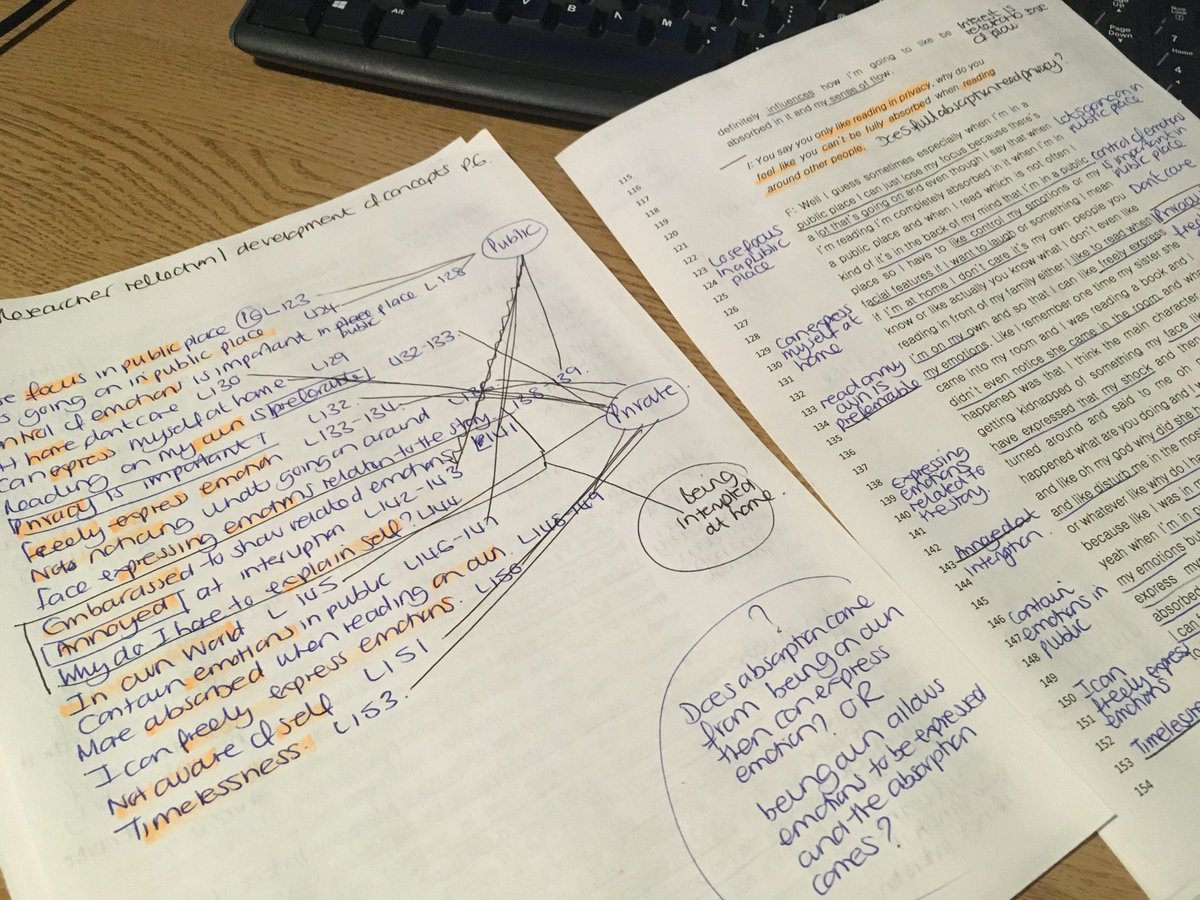 Researcher reflection/development of concepts PG.
Public
focus in public place (PG) L-123
going on in public place L124
control of emotion is important in place public place L128
have dont care L129
can express myself at home L130
Reading on my own is [preferable] L132 L132-133
Privacy is important? L132
Freely express emotion L133-134
Not noticing whats going on around
face expressing emotions relation to the story L138-139
Embarassed to show related emotions L141
Annoyed at interuption L142-143
Why do I have to explain self? L144
In own World L145
Contain emotions in public L146-147
More absorbed when reading on own. L148-149
I can freely express emotions. L150
Not aware of self L151
Timelessness. L153.
Private
being
interupted
at home
?
Does absorption come
from being on own
then can express
emotion? OR
being own allows
emotions to be expressed
and the absorption
comes?
Interest is
definitely influences how I'm going to like be
absorbed in it and my sense of flow.
I: You say you only like reading in privacy, why do you
feel like you can't be fully absorbed when reading
around other people.
Does full absorption need privacy?
F: Well I guess sometimes especially when I'm in a
public place I can just lose my focus because there's
a lot that's going on and even though I say that when
I'm reading I'm completely absorbed in it when I'm in
a public place and when I read which is not often I
kind of it's in the back of my mind that I'm in a public
place so I have to like control my emotions or my
facial features if I want to laugh or something I mean
if I'm at home I don't care it's my own people you
know or like actually you know what I don't even like
reading in front of my family either I like to read when
I'm on my own and so that I can like freely express
my emotions. Like I remember one time my sister she
came into my room and I was reading a book and I
didn't even notice she came in the room and
happened was that I think the main character
getting kidnapped of something my face
have expressed that my shock and then
turned around and said to me oh
happened what are you doing and
and like oh my god why did she
and like disturb me in the
or whatever like why do
because like I was in
yeah when I'm in
my emotions
express my
absorbed
I can
Lots going on in
public place
control of emotions
is important in
public place
Dont care
115
116
117
118
119
120
121
122
123
124
125
126
127
128
129
130
131
132
133
134
135
136
137
138
139
140
141
142
143
144
145
146
147
148
149
150
151
152
153
154
Lose focus
in a public
place
can express
myself at
home
read on my
own is
preferrable
Expressing
emotions
related to
the story.
Annoyed at
interuption.
Contain
emotions in
public
I can
freely express
emotions
Alt
V
B
N
M
Page
Down
7
Home